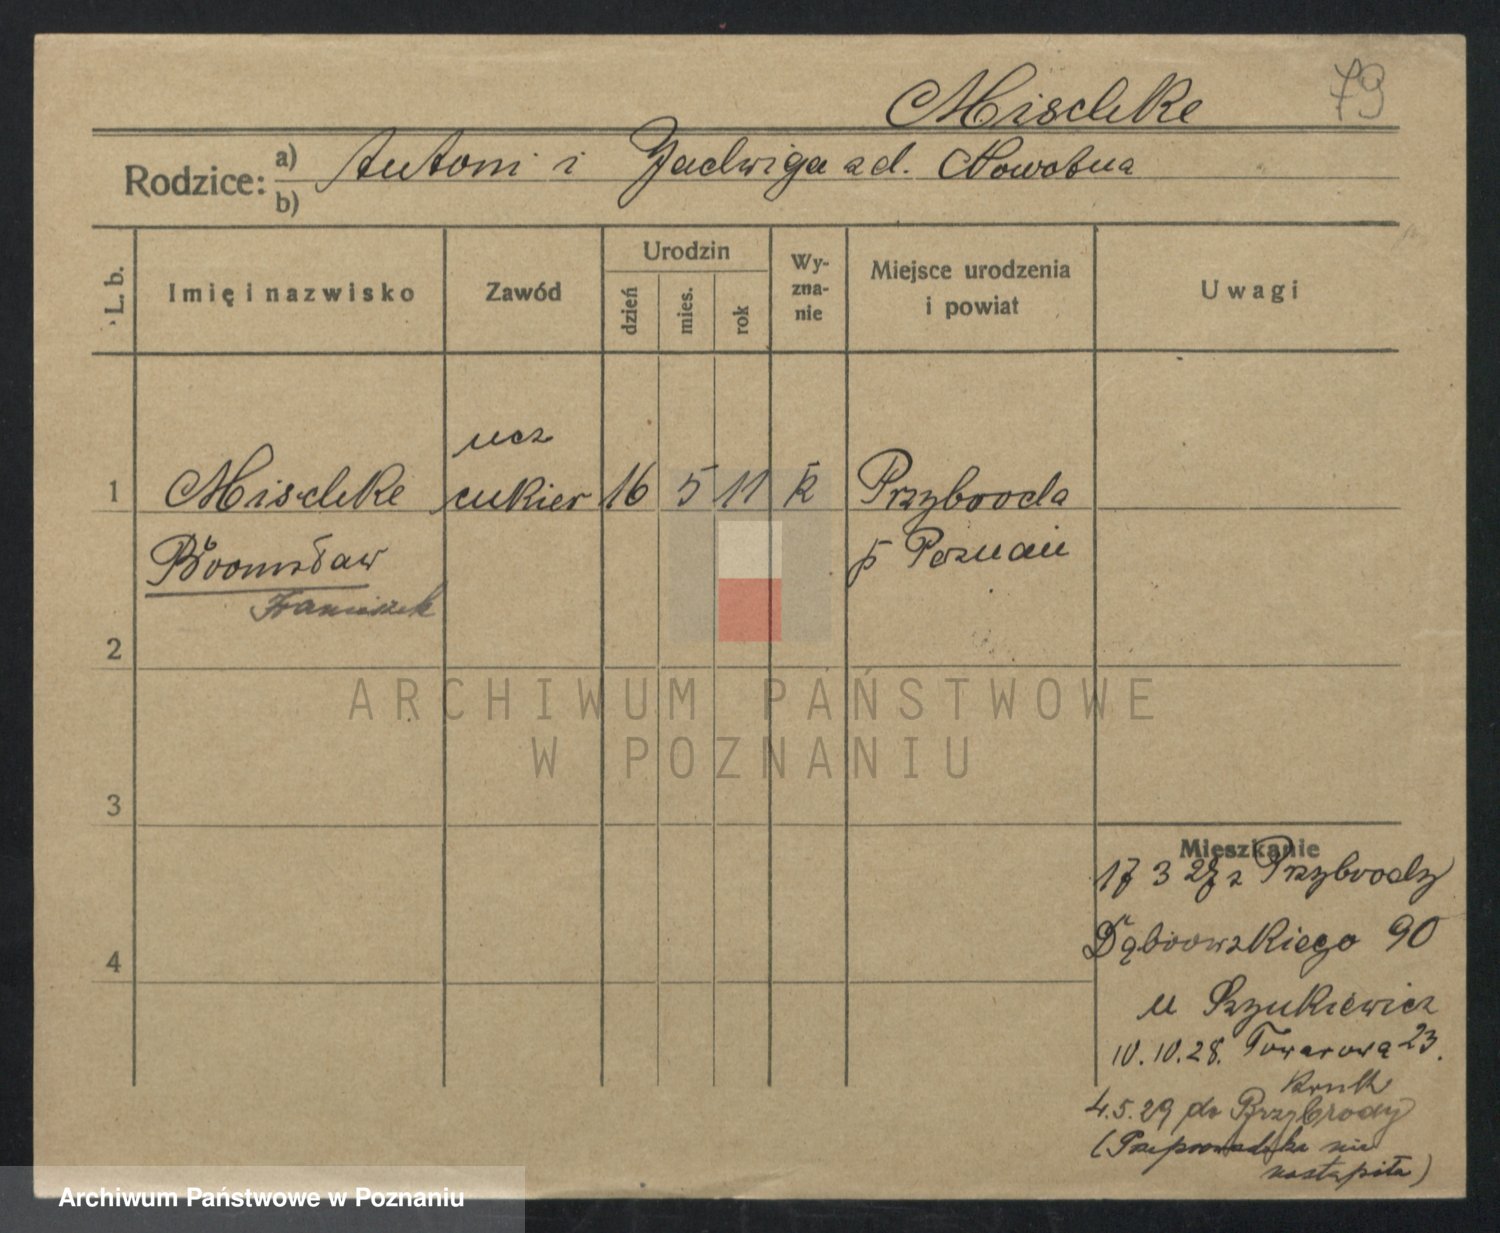 79
Mischke
Rodzice: a) Antoni i Jadwiga zd. Nowotna
b)
L. b.
Imię i nazwisko
Zawód
Urodzin
dzień
mies.
rok
Wy-
zna-
nie
Miejsce urodzenia
i powiat
Uwagi
ucz
1 Mischke cukier 16 5 11 k Przybroda
Bronisław p Poznań
Franciszek
2
3
4
Mieszkanie
17 3 27 z Przybrody
Dąbrowskiego 90
u Szukiewicz
10.10.28. Towarowa 23.
4.5.29 do Przybrody
(Przeprowadzka nie
nastąpiła)
ARCHIWUM PAŃSTWOWE
W POZNANIU
Archiwum Państwowe w Poznaniu